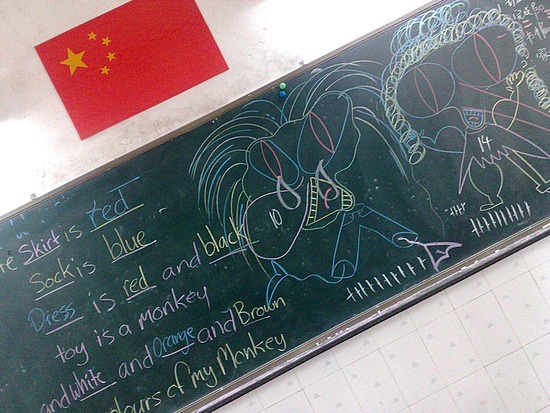 Skirt is red
Sock is blue
Dress is red and black
toy is a monkey
and white and Orange and Brown
colours of my Monkey
10
14